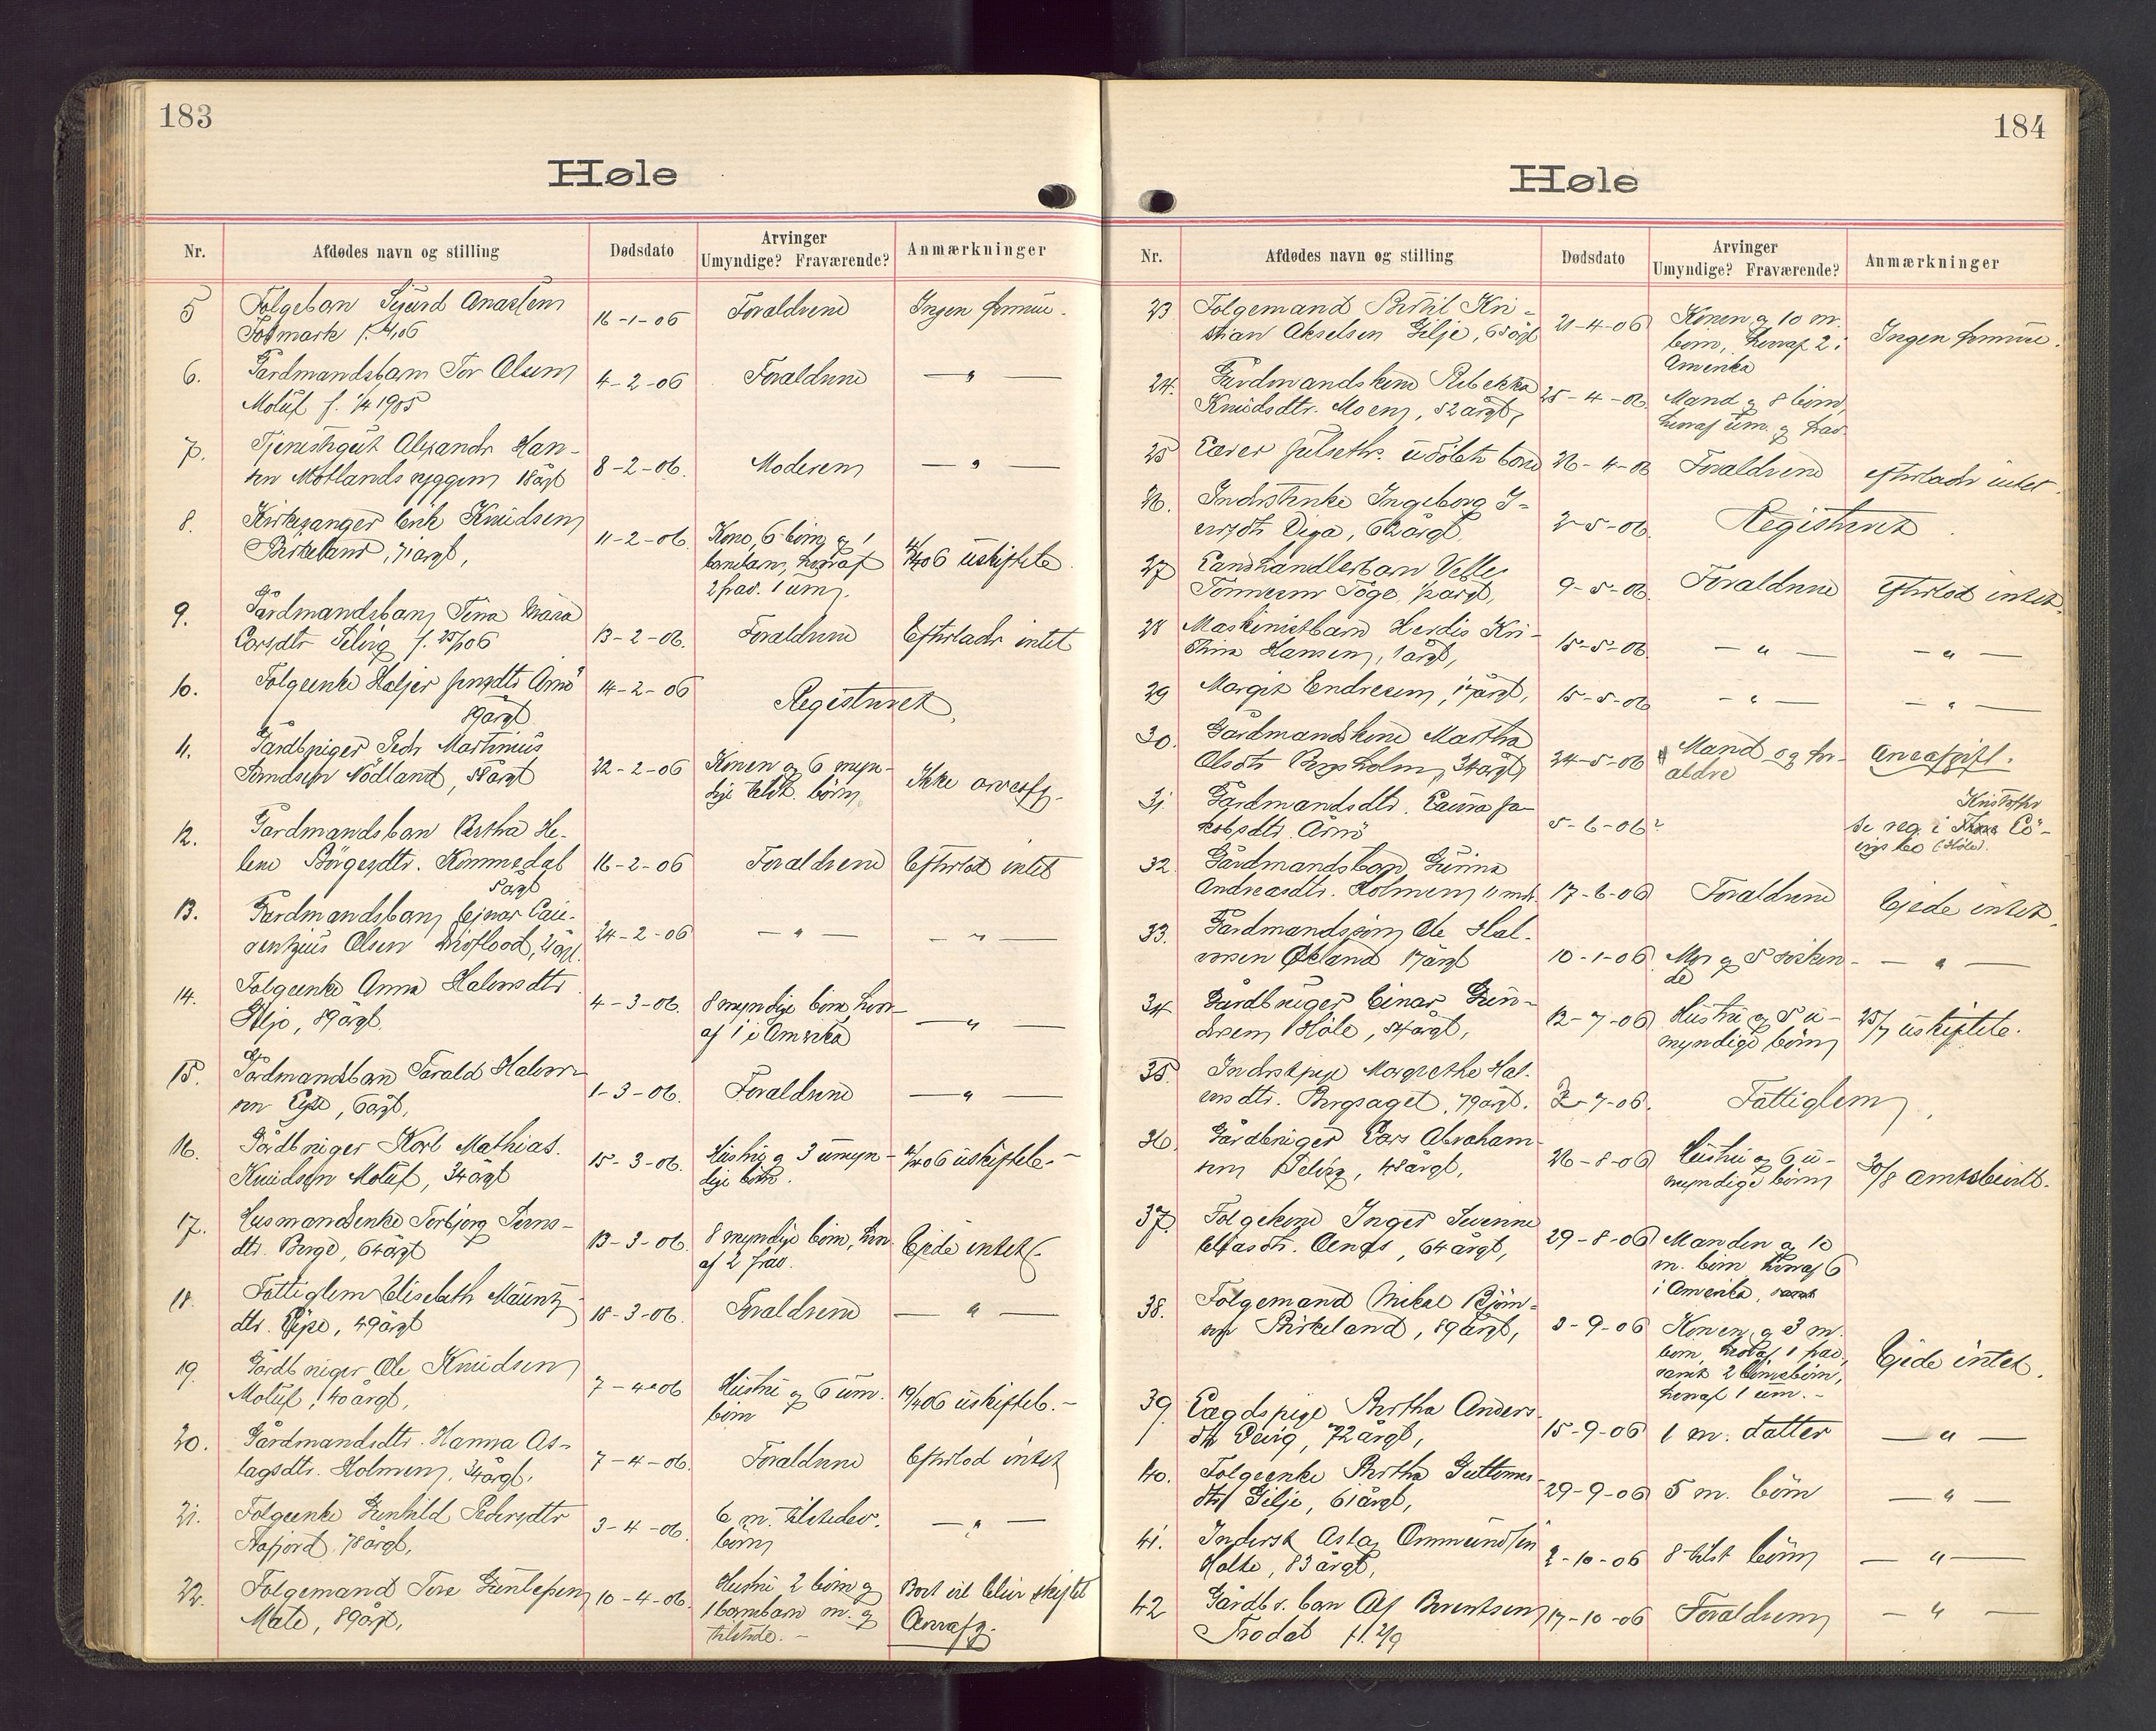 183
Høle
Nr.
Afdødes navn og stilling
Dødsdato
Arvinger
Umyndige? Fraværende?
Anmærkninger
5
Folgebarn Sigurd
16-1-06
Forældrene
Ingen formue.
6.
Gårdmandsbarn Tor Olsen
Moluf f. 1/4 1905
4-2-06
Forældrene
— " —
7.
Tjenestegut Alexander Han-
sen Motlandsryggen 18årgl
8-2-06.
Moderen
— " —
8.
Kirkesanger Erik Knudsen
Birkeland, 71årgl,
11-2-06.
Kone, 6 börn og 1
barnebarn, hvoraf
2 frav. 1 um.
06 uskiftebo.
9.
Gårdmandsbarn Tina Maria
Larsdtr
13-2-06.
Forældrene
Efterlader intet
10.
Folgeenke
89årgl
14-2-06
Registreret.
11.
Gårdbruger Peder Martinius
Nödland,
22-2-06
Konen og 6 myn-
dige tilst. börn
Ikke
12.
Gårdmandsbarn Bertha He-
lene Börgesdtr. Kommedal
5årgl
16-2-06
Forældrene
Efterlod intet
13.
Gårdmandsbarn Ejnar Lau-
rentzius Olsen
24-2-06
— " —
— " —
14.
Folgeenke Anna Halvorsdtr.
Gilje, 89årgl.
4-3-06.
8 myndige börn, hvor-
af 1 i Amerika
— " —
15.
Gårdmandsbarn Tarald Halvor-
sen Eipe, 6årgl,
1-3-06.
Forældrene
— " —
16.
Gårdbruger Karl Mathias.
Knudsen Moluf, 34årgl
15-3-06.
Hustru og 3 umyn-
dige börn.
06 uskiftebo.-
17.
Husmandsenke Torbjørg
dtr. Berge, 64årgl
13-3-06.
8 myndige börn, hvor-
af 2 frav.
Ejede intet.
18.
Fattiglem Elisabeth
dtr. Eipe, 49årgl
18-3-06.
Forældrene
— " —
19.
Gårdbruger Ole Knudsen
Moluf, 40årgl,
7-4-06
Hustru og 6 um.
börn
19/4 06 uskifteb.-
20.
Gårdmandsdtr. Hanna As-
lagsdtr. Holmen, 34årgl.
7-4-06.
Forældrene
Efterlod intet
21.
Folgeenke Gunhild Pedersdtr
78årgl,
3-4-06.
6 m. tilstedev.
börn
— " —
22.
Folgemand Tore Gunlefsen
Mæle, 89årgl,
10-4-06.
Hustru 2 börn og
1 barnebarn m. og
tilstede.-
Boet vil blive skiftet
Arveafg.
184
Høle
Nr.
Afdødes navn og stilling
Dødsdato
Arvinger
Umyndige? Fraværende?
Anmærkninger
23
Folgemand Bertil Kri-
stian Akselsen Gilje, 65årgl
21-4-06
Konen og 10 m.
börn, hvoraf 2 i
Amerika
Ingen formue.
24.
Gårdmandskone Rebekka
Knudsdtr. Moen, 52årgl,
25-4-06.
Mand og 8 börn,
hvoraf um. og frav.
25
udöbt barn
26-4-06
Forældrene
efterlader intet.
26.
Inderstenke Ingeborg I-
versdtr 62årgl.
2-5-06.
Registreret.
27
Landhandlerbarn
9-5-06.
Forældrene
Efterlod intet.
28
Maskinistbarn Herdis Kri-
stina Hansen, 1årgl,
15-5-06.
— " —
— " —
29
Margit Endresen,
15-5-06
— " —
— " —
30.
Gårdmandskone Martha
Olsdtr Bergsholm, 34årgl,
24-5-06
Mand og for-
ældre
Arveafgift.
31.
Gårdmandsdtr. Laura Ja-
kobsdtr. Årnö
5-6-06?
Kristoffer
se reg. i
bo (Höle).
32
Gårdmandsbarn Gurina
Andreasdtr. Holmen 11 mdr.
17-6-06
Forældrene
Ejede intet.
33.
Gårdmandssön Ole Hal-
vorsen Økland 17årgl
10-1-06
Mor og 5 sösken-
de
— " —
34
Gårdbruger Einar Gun-
dersen Höle, 54årgl,
12-7-06
Hustru og 5 u-
myndige börn
25/7 uskiftebo.
35.
Inderstpige Margrethe Hal-
vorsdtr. Bergsaget, 79årgl.
2-7-06.
Fattiglem.
36.
Gårdbruger Lars Abraham-
sen 48årgl,
26-8-06
Hustru og 6 u-
myndige börn
30/8 amtsbevilb.
37.
Folgekone Inger Severine
Eliasdtr. 64årgl,
29-8-06
Manden og 10
m. börn hvoraf 6
i Amerika,
38.
Folgemand Mikal Björn-
sen Birkeland, 89årgl,
3-9-06
Konen og 3 m.
börn, hvoraf 1 frav.
samt 2 börnebörn,
hvoraf 1 um.-
Ejede intet.
39.
Lægdspige Bertha Anders-
dtr 72årgl,
15-9-06
1 m. datter
— " —
40.
Folgeenke Bertha Guttorms-
dtr Gilje, 61årgl,
29-9-06
5 m. börn
— " —
41.
Inderst Aslag Ommundsen
Holte, 83årgl,
2-10-06
8 tilst börn
— " —
42
Gårdbr. barn Alf Berentsen
Frodal f. 2/9
17-10-06
Forældrene
— " —